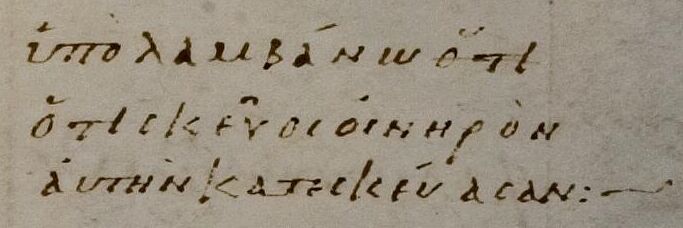 ὑπολαμβάνω ὅτι
ὅτι σκεῦοσ ὀινηρὸν
ἀυτὴν κατεσκεύασαν:~